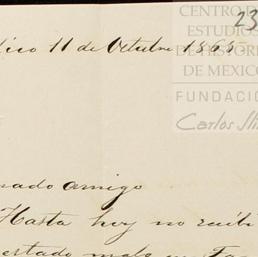 23
CENTRO DE
ESTUDIOS
DE HISTORIA
DE MEXICO
FUNDACIÓ
Carlos Sli
xico 11 de Octubre 1865
mado amigo
Hasta hoy no recibi
estado malo en